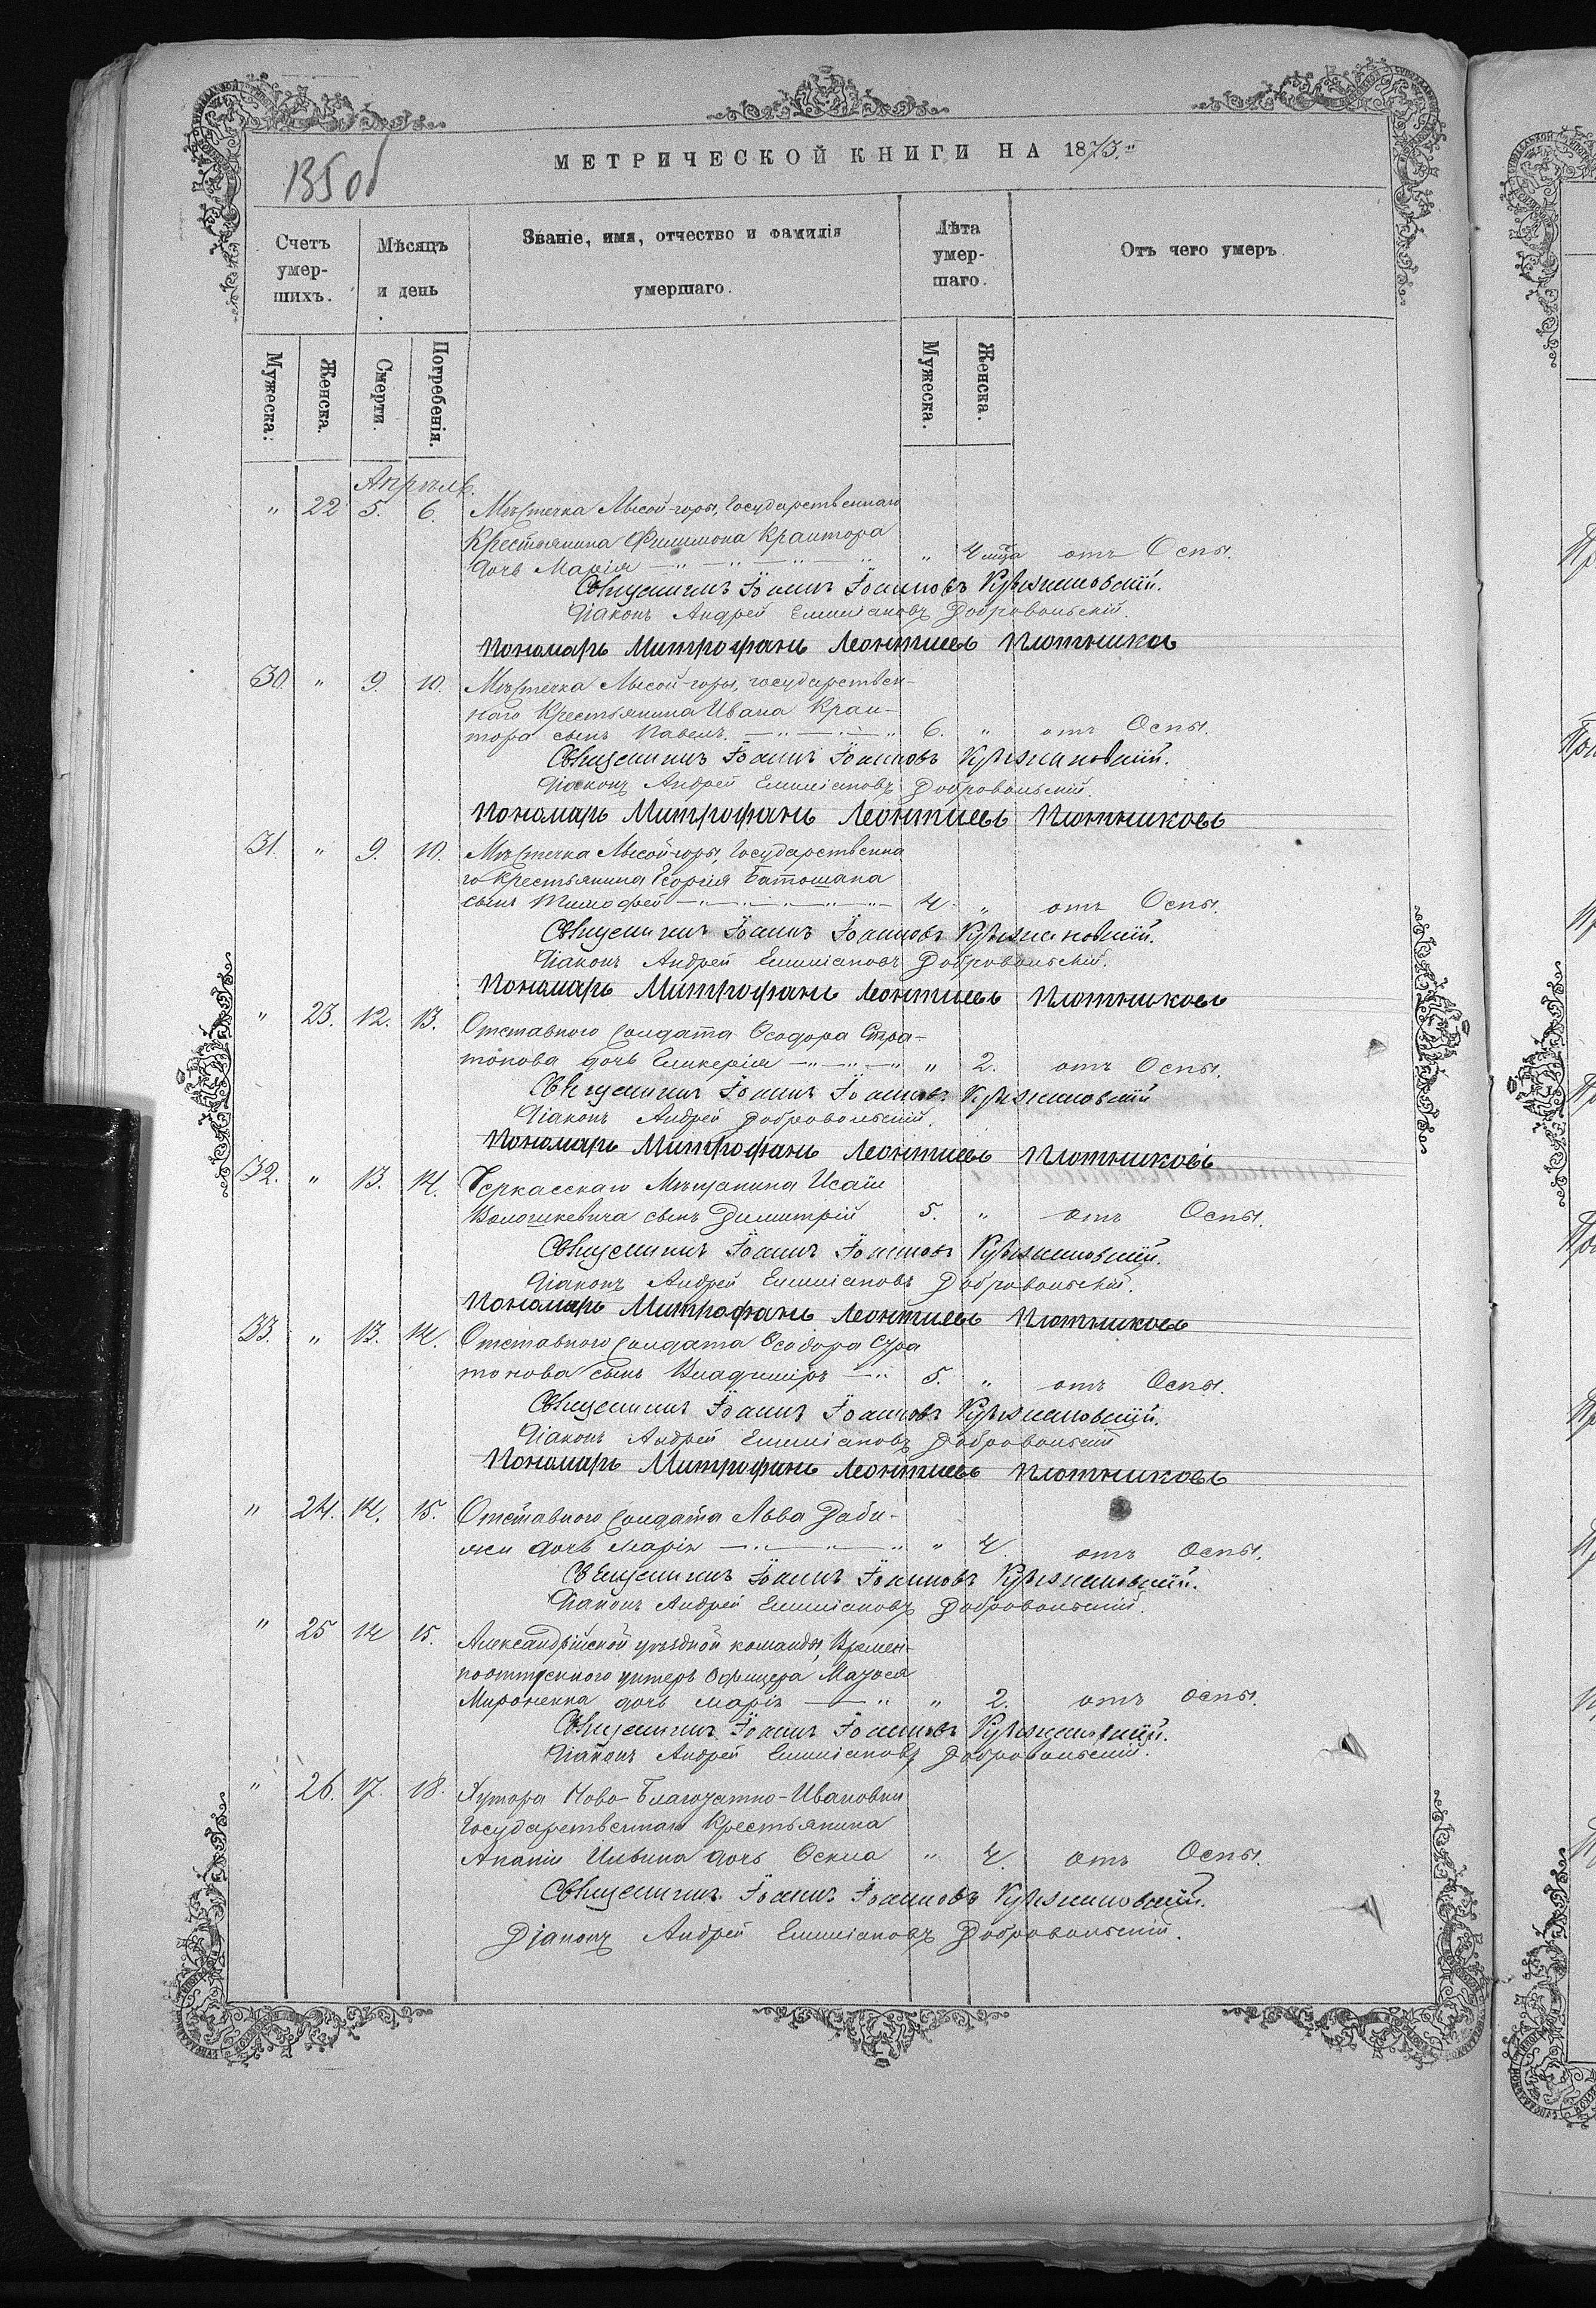 135об
МЕТРИЧЕСКОЙ КНИГИ НА 1873."
Счетъ умер-шихъ.
Мѣсяцъ и день
Званіе, имя, отчество и фамилія умершаго.
Лѣта умер-шаго.
Отъ чего умеръ.
Мужеска.
Женска.
Смерти.
Погребенія.
Мужеска.
Женска.
Апрѣль.
" 22 5. 6. Мѣстечка Лысой-горы, Государственнаго
Крестьянина Филимона Крамтора
дочь Марія " 4 мца отъ Оспы.
Священникъ Іоаннъ Іоанновъ Крыжановскій.
Діаконъ Андрей Емиліановъ Добровольскій.
Пономарь Митрофанъ Леонтиевъ Плотников
30. " 9. 10. Мѣстечка Лысой-горы, государствен-
наго Крестьянина Ивана Крам-
тора сынъ Павелъ. 6. " отъ Оспы.
Священникъ Іоаннъ Іоанновъ Крыжановскій.
Діаконъ Андрей Емиліановъ Добровольскій.
Пономарь Митрофанъ Леонтиевъ Плотниковъ
31. " 9. 10. Мѣстечка Лысой-горы, Государственна
го Крестьянина Георгія Батошана
сынъ Тимофей 4. " отъ Оспы.
Священникъ Іоаннъ Іоанновъ Крыжановскій.
Діаконъ Андрей Емиліановъ Добровольскій.
Пономарь Митрофанъ Леонтиевъ Плотниковъ
" 23. 12. 13. Отставного Солдата Ѳеодора Стра-
тонова дочь Гликерія " 2. отъ Оспы.
Священникъ Іоаннъ Іоанновъ Крыжановскій
Діаконъ Андрей Добровольскій.
Пономарь Митрофанъ Леонтиевъ Плотниковъ
32. " 13. 14. Черкасскаго Мѣщанина Исаіи
Волошкевича сынъ Димитрій 5. " отъ Оспы.
Священникъ Іоаннъ Іоанновъ Крыжановскій.
Діаконъ Андрей Емиліановъ Добровольскій.
Пономарь Митрофанъ Леонтиевъ Плотниковъ
33. " 13. 14. Отставного Солдата Ѳеодора Стра
тонова сынъ Владиміръ 5. " отъ Оспы.
Священникъ Іоаннъ Іоанновъ Крыжановскій.
Діаконъ Андрей Емиліановъ Добровольскій
Пономарь Митрофанъ Леонтиевъ Плотниковъ
" 24. 14. 15. Отставного Солдата Льва Даби-
жи дочь Марія " 4. отъ Оспы.
Священникъ Іоаннъ Іоанновъ Крыжановскій.
Діаконъ Андрей Емиліановъ Добровольскій.
" 25 14 15. Александрійской уѣздной команды, Времен-
ноотпускного унтеръ Офицера
Мироненка дочь Марія " 2. отъ Оспы.
Священникъ Іоаннъ Іоанновъ Крыжановскій.
Діаконъ Андрей Емиліановъ Добровольскій.
" 26. 17. 18. Хутора Ново-Благодатно-Ивановки
Государственнаго Крестьянина
Ананіи Ильина дочь " 4. отъ Оспы.
Священникъ Іоаннъ Іоанновъ Крыжановскій.
Діаконъ Андрей Емиліановъ Добровольскій.